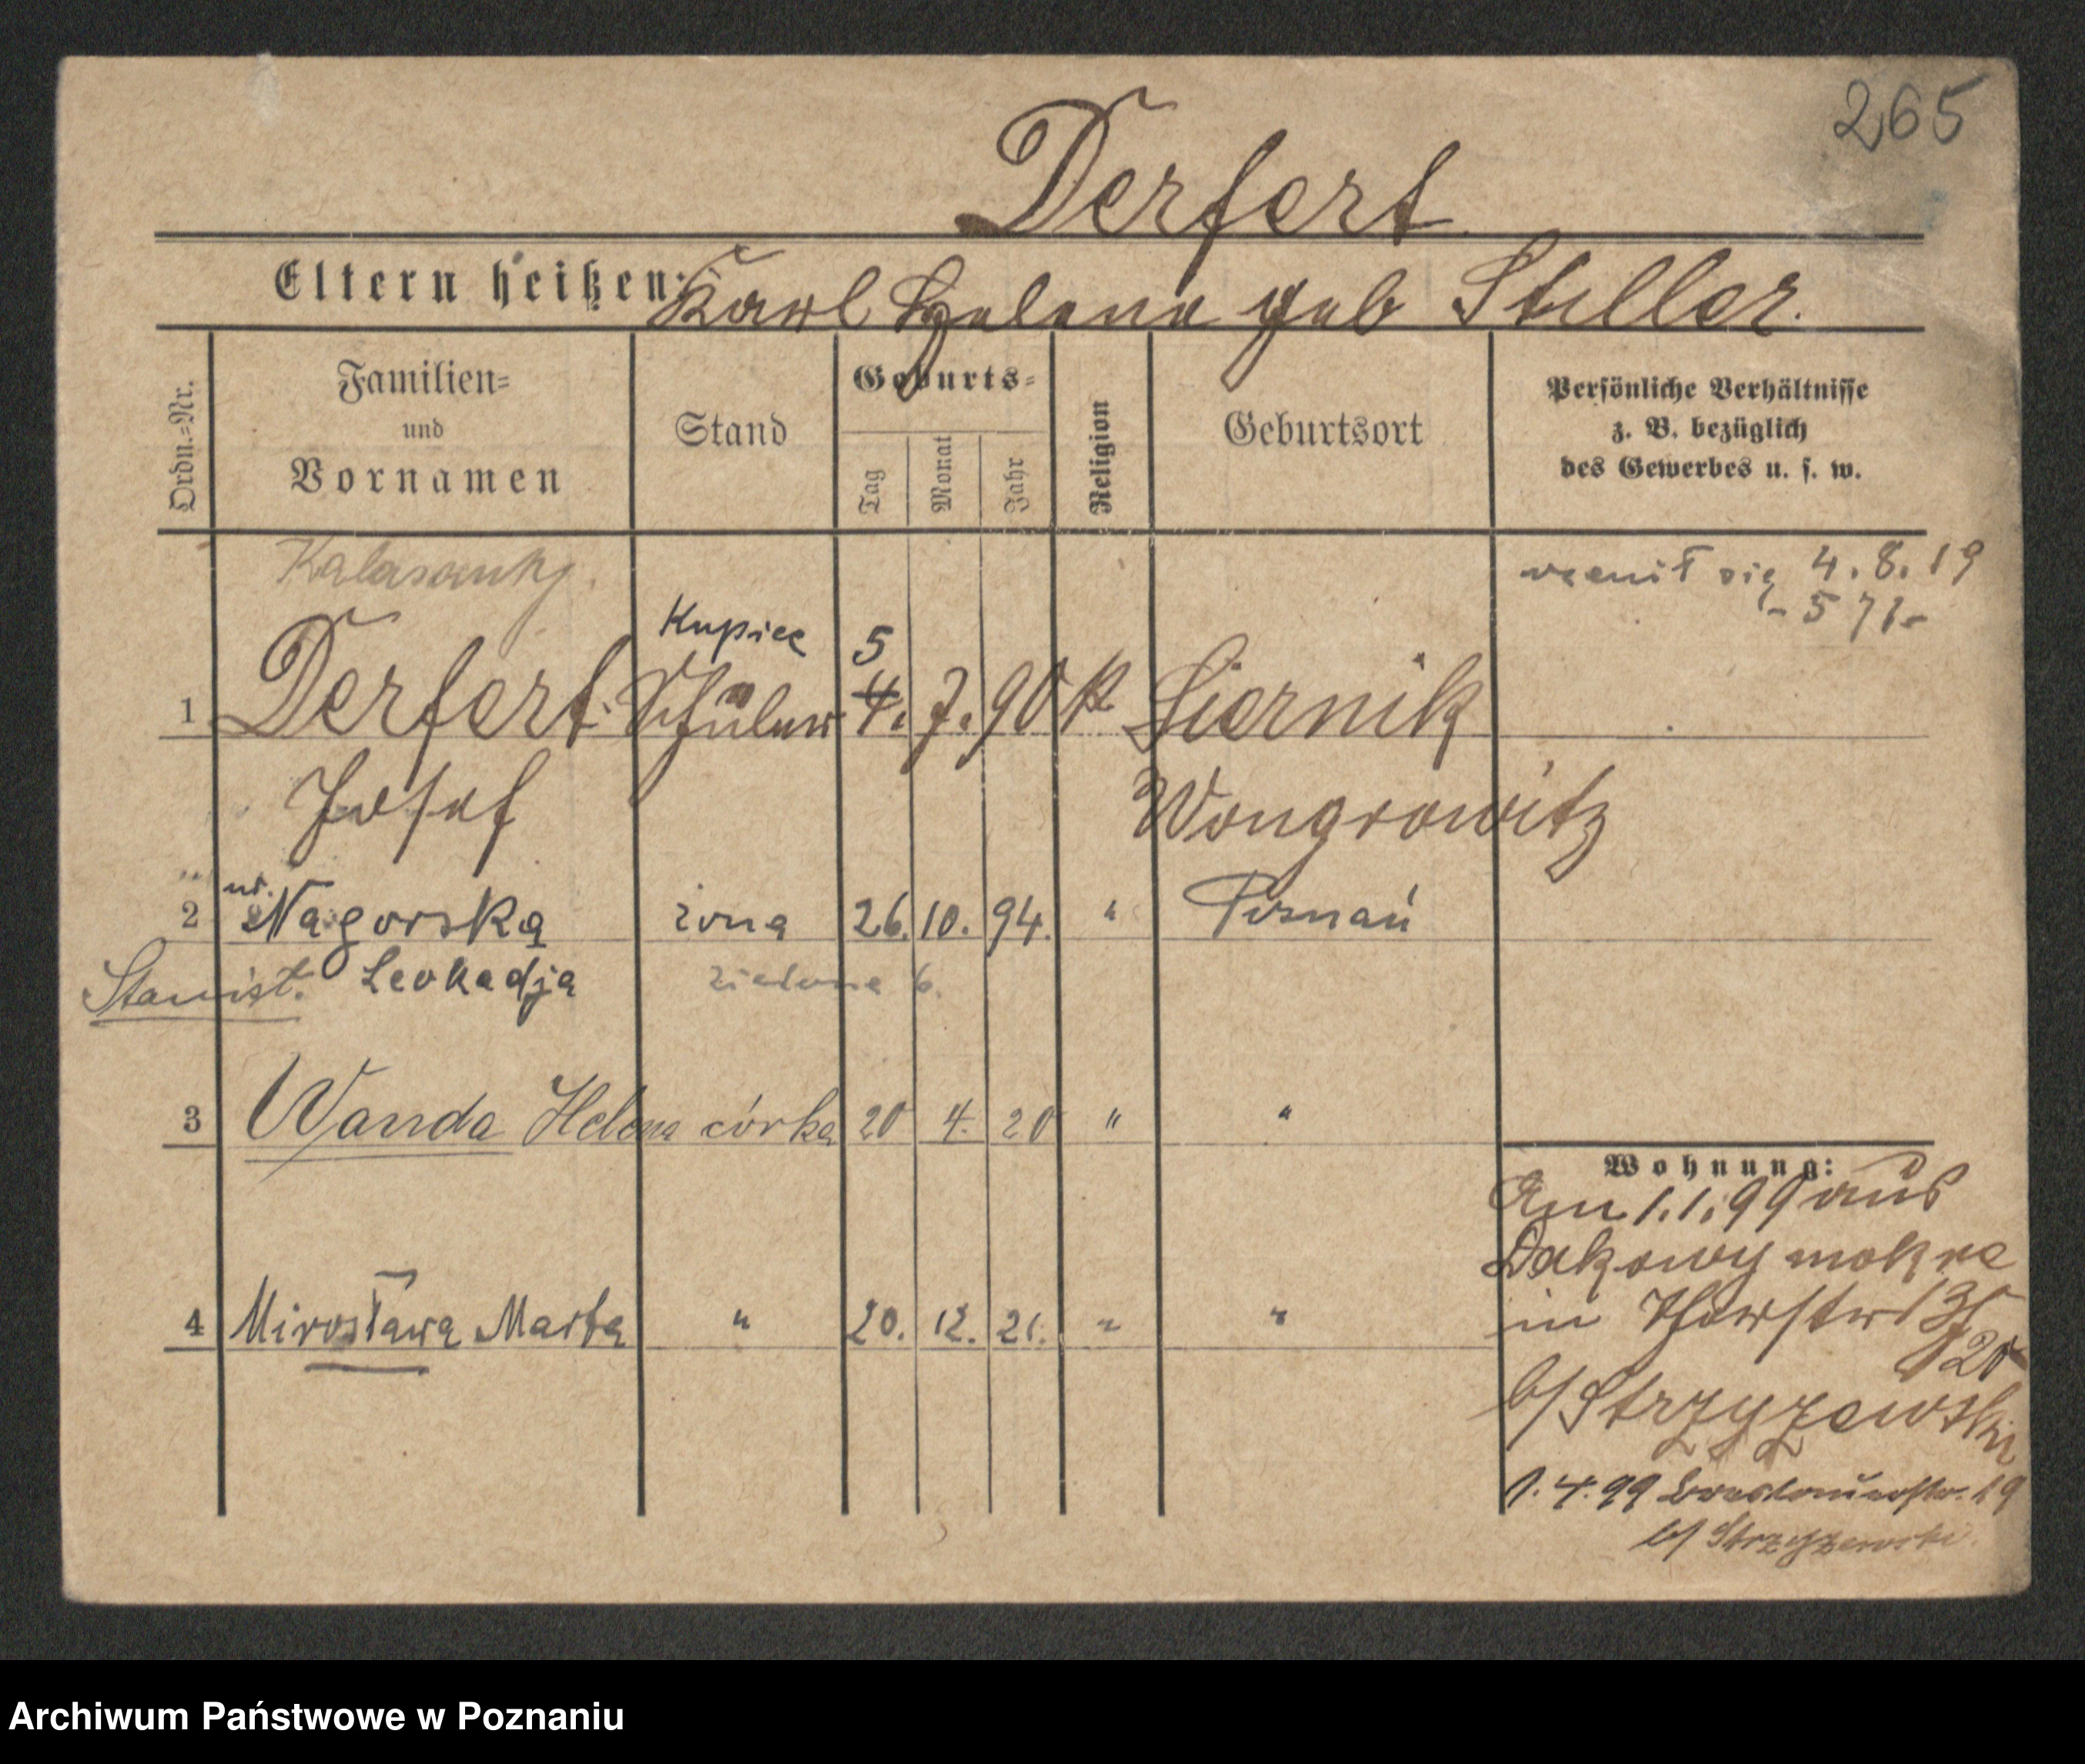 265
Derfert
Eltern heißen: Karl Helena geb Stiller.
Ordn.=Nr.
Familien=
und
Vornamen
Stand
Geburts=
Tag
Monat
Jahr
Religion
Geburtsort
Persönliche Verhältnisse
z. B. bezüglich
des Gewerbes u. s. w.
Kalasanty
żenił się 4.8.19
- 571-
Kupiec 5
1 Derfert Schüler 4. 7. 90 K Siernik
Josef Wongrowitz
2 ur. Nagorska żona 26. 10. 94. " Poznań
Stanisł. Leokadja Zielona 6.
3 Wanda Helena córka 20 4. 20 " "
4 Mirosława Marta " 20. 12. 21. " "
Wohnung:
Am 1.1.99 aus
Dakowy mokre
in
20
b/ Strzyzewski
1.4.99 Breslauerstr. 19
b/ Strzyzewski.
Archiwum Państwowe w Poznaniu